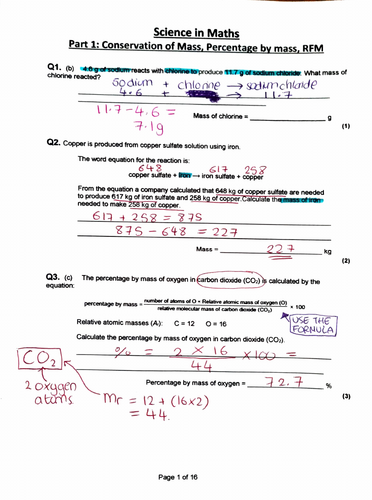 Science in Maths
Part 1: Conservation of Mass, Percentage by mass, RFM
Q1. (b) 4.6 g of sodium reacts with chlorine to produce 11.7 g of sodium chloride. What mass of
chlorine reacted?
sodium + chlorine → sodium chloride
4.6 + → 11.7
11.7 - 4.6 =
7.1g
Mass of chlorine = g
(1)
Q2. Copper is produced from copper sulfate solution using iron.
The word equation for the reaction is:
648 617 258
copper sulfate + iron → iron sulfate + copper
From the equation a company calculated that 648 kg of copper sulfate are needed
to produce 617 kg of iron sulfate and 258 kg of copper. Calculate the mass of iron
needed to make 258 kg of copper.
617 + 258 = 875
875 - 648 = 227
Mass = 227 kg
(2)
Q3. (c) The percentage by mass of oxygen in carbon dioxide (CO₂) is calculated by the
equation:
percentage by mass = number of atoms of O × Relative atomic mass of oxygen (O) × 100
relative molecular mass of carbon dioxide (CO₂)
USE THE
FORMULA
Relative atomic masses (A): C = 12 O = 16
Calculate the percentage by mass of oxygen in carbon dioxide (CO₂).
% = 2 × 16 × 100 =
44
CO₂
2 oxygen
atoms
Percentage by mass of oxygen = 72.7 %
(3)
Mr = 12 + (16×2)
= 44.
Page 1 of 16